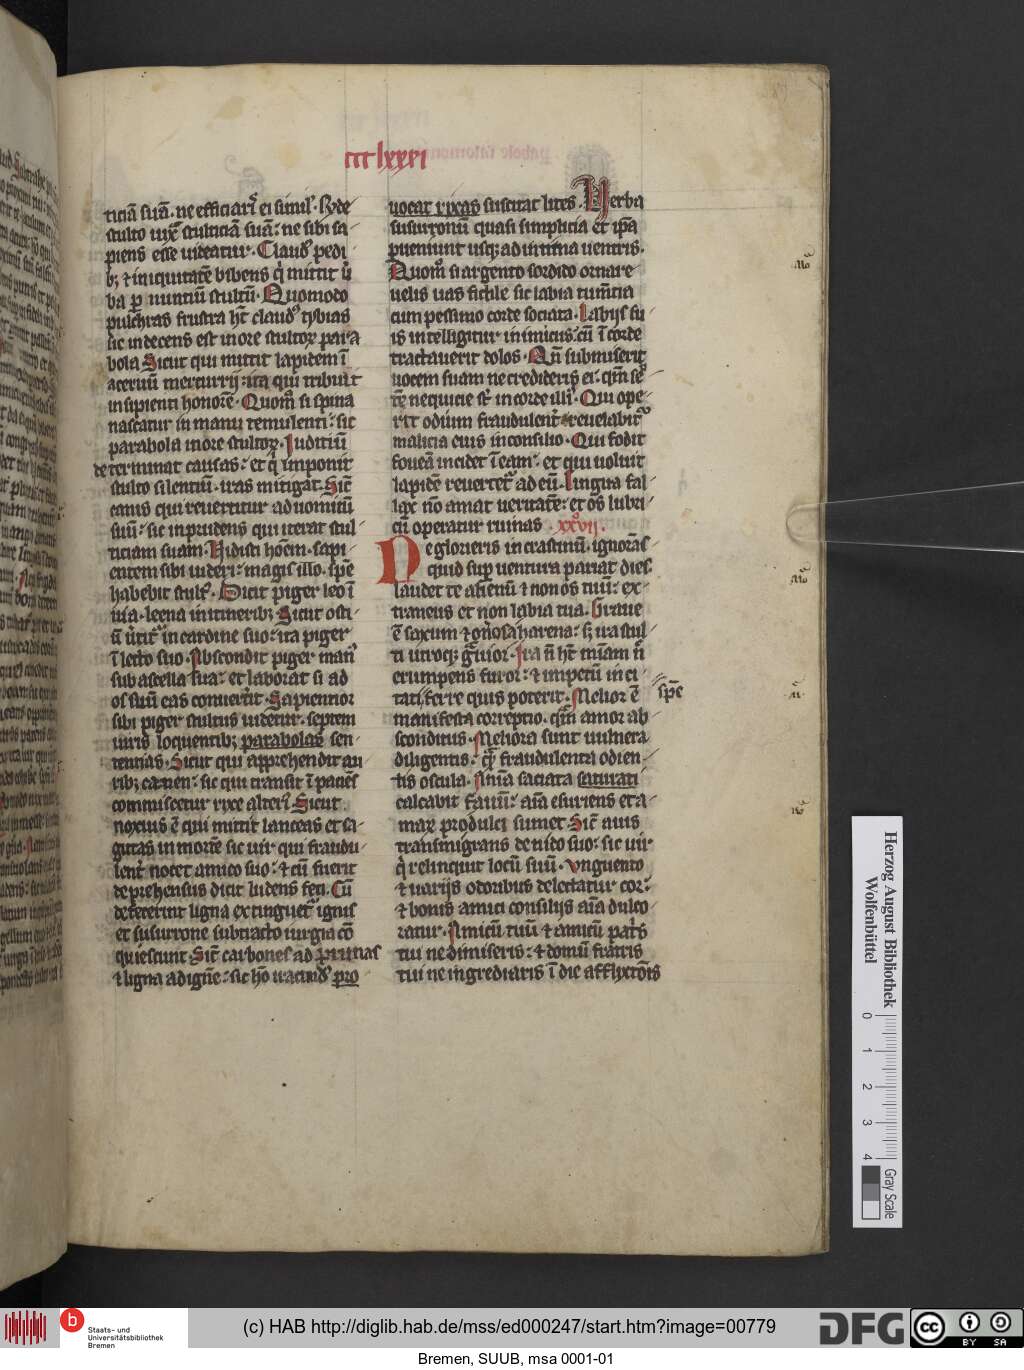 ccc lxxxi
ticiā suā. ne efficiarˢ ei simil'. Rͬde
stulto iuxͭ stulticiā suā: ne sibi sa-
piens esse uideatur. Claudꝰ pedi-
bꝫ ⁊ iniquitatē bibens q̇ mittit ū
ba ꝑ nuntiū stultū. Quomodo
pulchras frustra hͭt claudꝰ tybias
sic indecens est in ore stultoꝝ para
bola Sicut qui mittit lapidem ī
aceruū mercurrij: ita qui tribuit
insipienti honorē. Quomͦ si spina
nascatur in manu temulenti: sic
parabola in ore stultoꝝ. Iuditiū
determinat causas: et q̇ imponit
stulto silentiū. iras mitigat. Sic̄
canis qui reuertitur ad uomitū
suū: sic inprudens qui iterat stul-
ticiam suam. Vidisti hōem. sapi-
entem sibi uideri: magis illo. spē
habebit stultꝰ. Dicit piger leo ī
uia. leena in itineribꝫ Sicut osti-
ū ūtitˢ in cardine suo: ita piger
ī lecto suo. Abscondit piger manꝰ
sub ascella sua: et laborat si ad
os suū eas conuerͭit. Sapientior
sibi piger stultus uidetur. septem
uiris loquentibꝫ parabolas sen-
tentias. Sicut qui apprehendit au-
ribꝫ canen: sic qui transit ī pacīes
commiscetur rixe alteriꝰ. Sicut
noxius ē qui mittit lanceas et sa-
gittas in mortē sic uir qui fraudu-
lentˢ nocet amico suo: ⁊ cū fuerit
deprehensus dicit ludens feci. Cū
defecerint ligna extinguetˢ ignis
et susurrone subtracto iurgia cō
quiescunt. Sic̄ carbones ad prunas
⁊ ligna ad ignē: sic hō iracūdꝰ pro
uocat rixas suscitat lites. Verba
susurronū quasi simplicia et ip̄a
ꝑueniunt usqꝫ ad intima uentris.
Quomͦ si argento sordido ornare
uelis uas fictile sic labia tumētia
cum pessimo corde sociata. Labijs su-
is intelligitur inimicus. cū ī corde
tractauerit dolos. Qn̄ submiserit
uocem suam ne credideris ei. qm̄ se-
tē nequicie sͭ in corde illiꝰ. Qui ope-
rit odium fraudulentˢ reuelabitˢ
malicia eius in consilio. Qui fodit
foueā incidet ī eam: et qui uoluit
lapidē reuertetˢ ad eū. Lingua fal-
lax nō amat ueritatē: et os lubri-
cū operatur ruinas .xxvij.
Ne glorieris in crastinū. ignorās
quid suꝑ uentura pariat dies.
laudet te alienū ⁊ non os tuū: ex-
traneus et non labia tua. Graue
ē saxum ⁊ on̄osa harena: sꝫ ira stul-
ti utroqꝫ grauior. Ira n̄ hͭt mīam n̄
erumpens furor: ⁊ impetū in ci-
tati ferre quis poterit. Melior ē
manifesta correptio. qm̄ amor ab-
sconditus. Meliora sunt uulnera
diligentis: qͣ fraudulenta odien-
tis oscula. Anīa saciata saturati
calcabit fauū: aīa esuriens et a-
maꝝ pro dulci sumet. Sic̄ auis
transmigrans de nido suo: sic uir
q̇ relinquit locū suū. Vnguento
⁊ uarijs odoribus delectatur cor:
⁊ bonis amici consilijs aīa dulco-
ratur. Amicū tuū ⁊ amicū patris
tui ne dimiseris: ⁊ domū fratris
tui ne ingrediaris ī die afflixcōis
spē
Herzog August Bibliothek
Wolfenbüttel
0 1 2 3 4
Gray Scale
b
Staats- und
Universitätsbibliothek
Bremen
(c) HAB http://diglib.hab.de/mss/ed000247/start.htm?image=00779
DFG
cc
BY SA
Bremen, SUUB, msa 0001-01